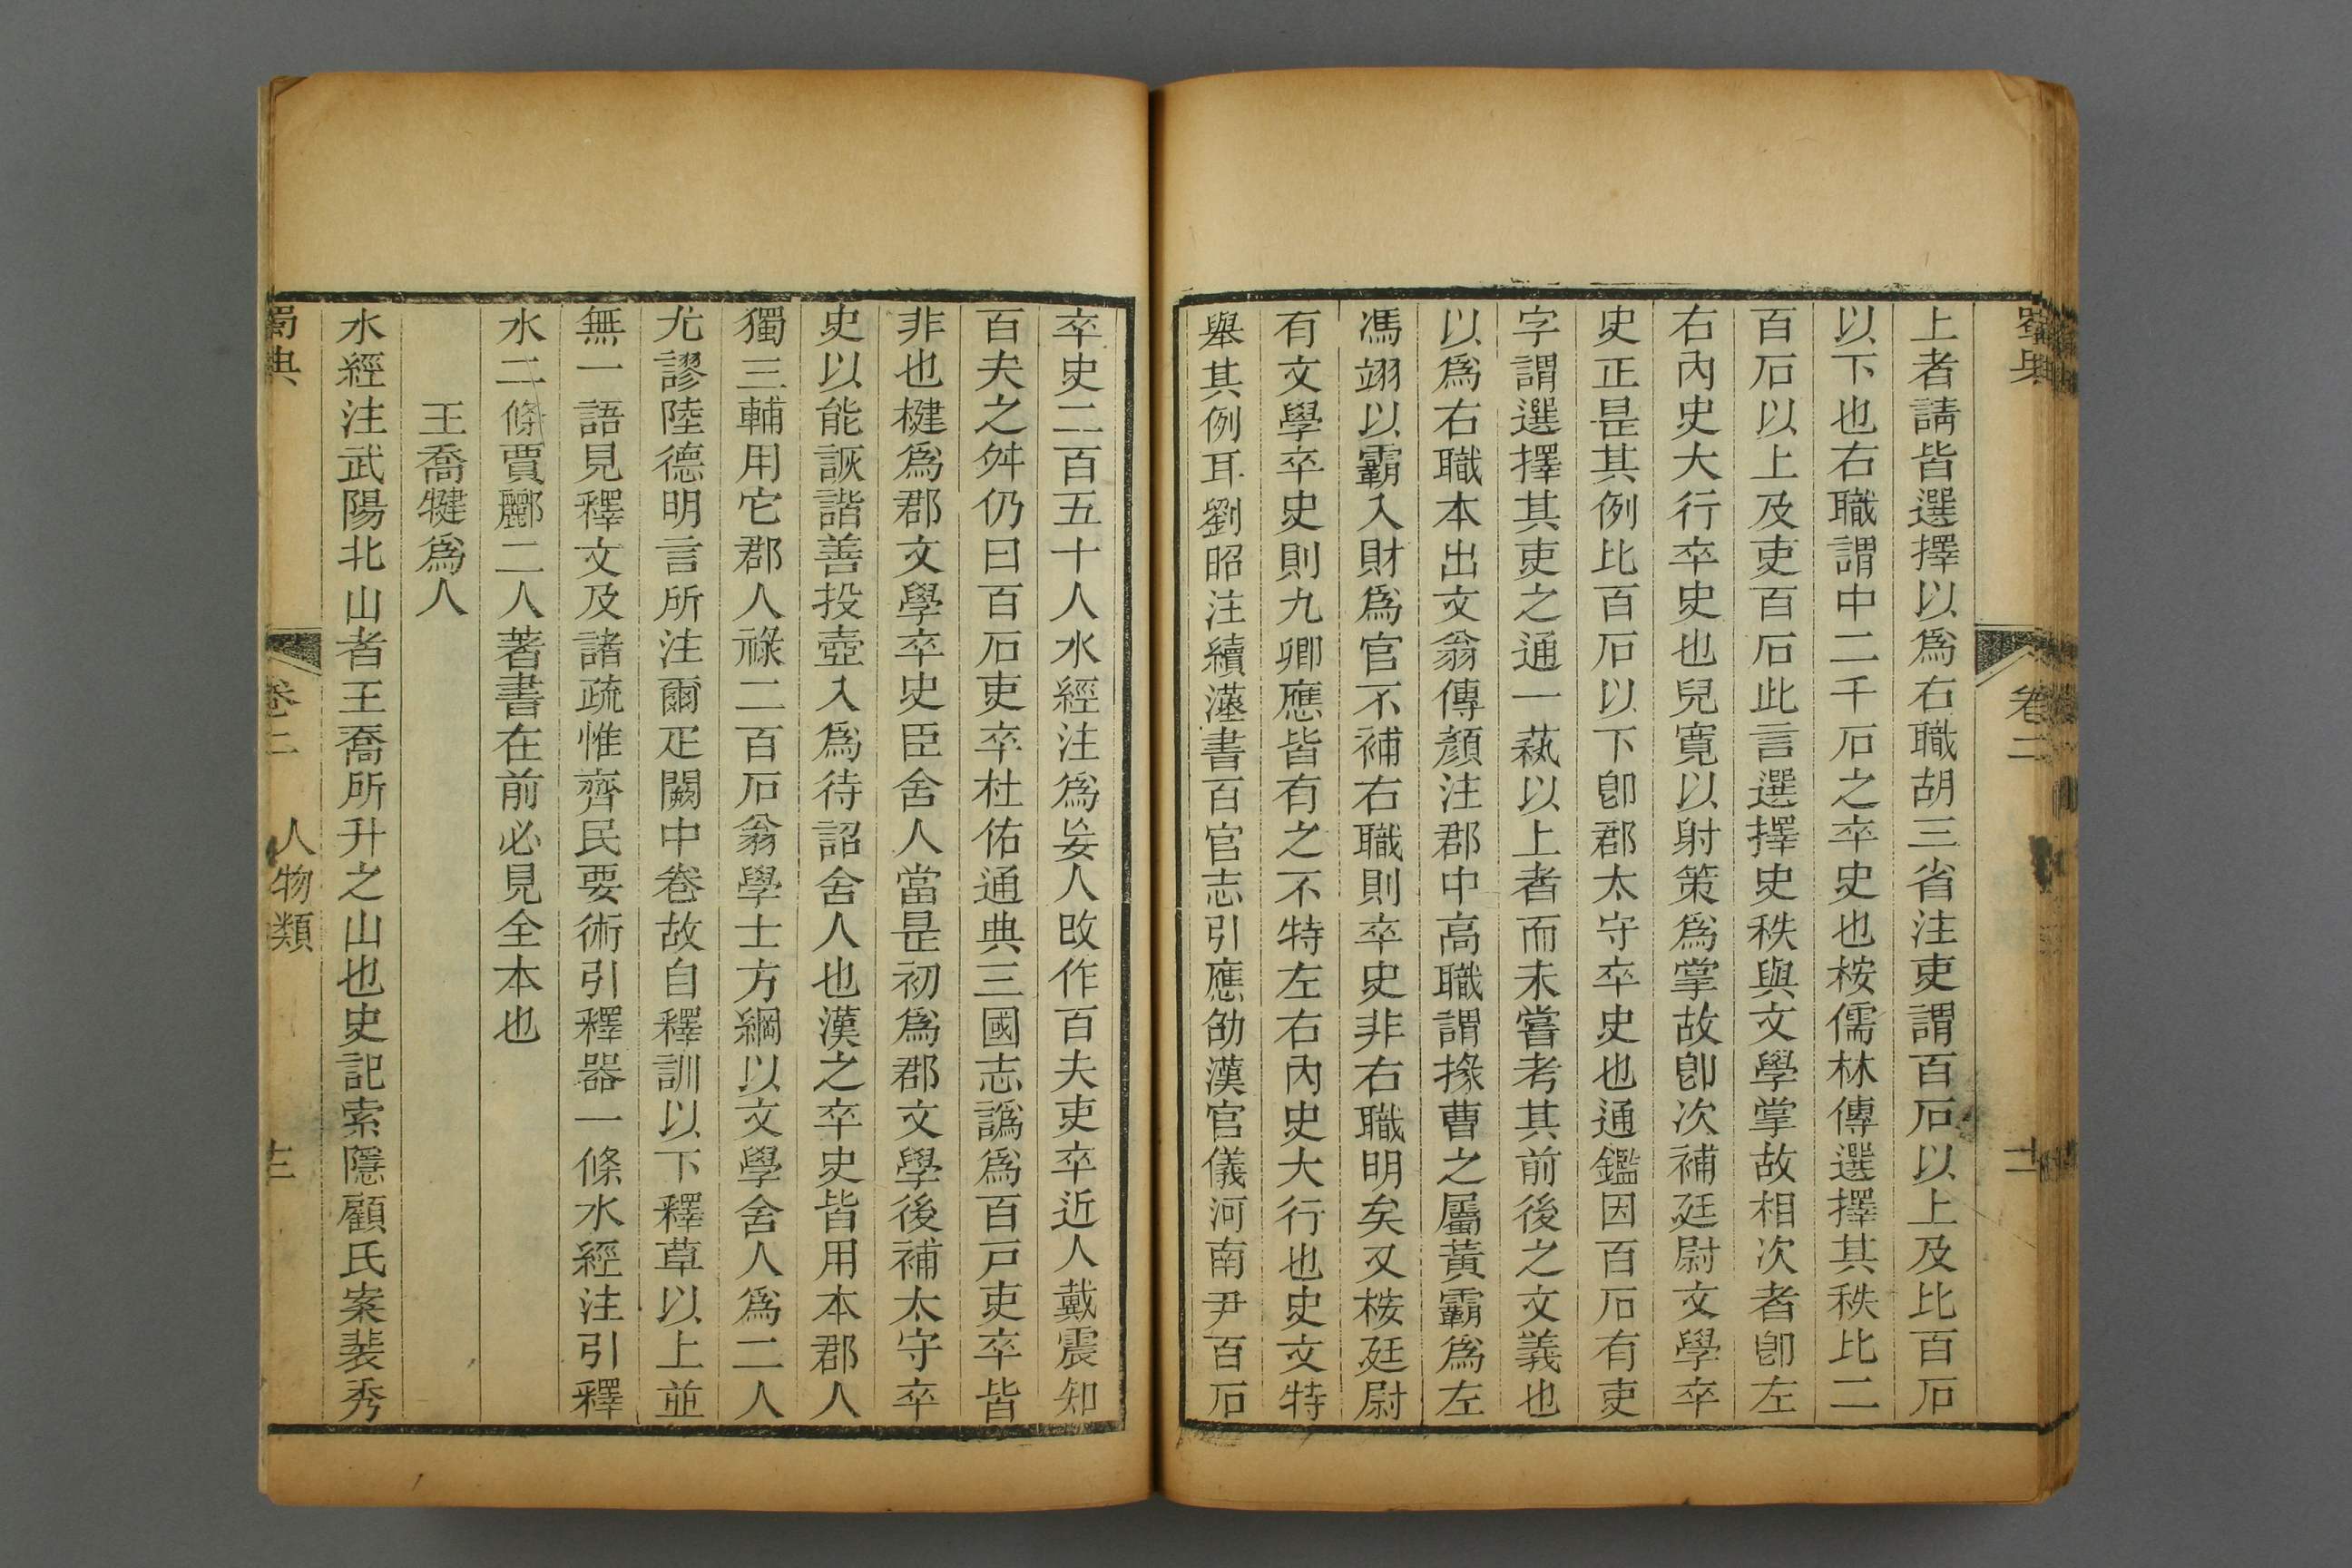 蜀典
卷二
十二
上者請皆選擇以爲右職胡三省注吏謂百石以上及比百石
以下也右職謂中二千石之卒史也桉儒林傳選擇其秩比二
百石以上及吏百石此言選擇史秩與文學掌故相次者卽左
右內史大行卒史也兒寬以射策爲掌故卽次補廷尉文學卒
史正是其例比百石以下卽郡太守卒史也通鑑因百石有吏
字謂選擇其吏之通一蓺以上者而未嘗考其前後之文義也
以爲右職本出文翁傳顏注郡中高職謂掾曹之屬黃霸爲左
馮翊以霸入財爲官不補右職則卒史非右職明矣又桉廷尉
有文學卒史則九卿應皆有之不特左右內史大行也史文特
舉其例耳劉昭注續漢書百官志引應劭漢官儀河南尹百石
卒史二百五十人水經注爲妄人改作百夫吏卒近人戴震知
百夫之舛仍曰百石吏卒杜佑通典三國志譌爲百戸吏卒皆
非也楗爲郡文學卒史臣舍人當是初爲郡文學後補太守卒
史以能詼諧善投壺入爲待詔舍人也漢之卒史皆用本郡人
獨三輔用它郡人祿二百石翁學士方綱以文學舍人爲二人
尤謬陸德明言所注爾疋闕中卷故自釋訓以下釋草以上並
無一語見釋文及諸疏惟齊民要術引釋器一條水經注引釋
水二條賈酈二人著書在前必見全本也
王喬犍爲人
水經注武陽北山者王喬所升之山也史記索隱顧氏案裴秀
蜀典
卷二
人物類